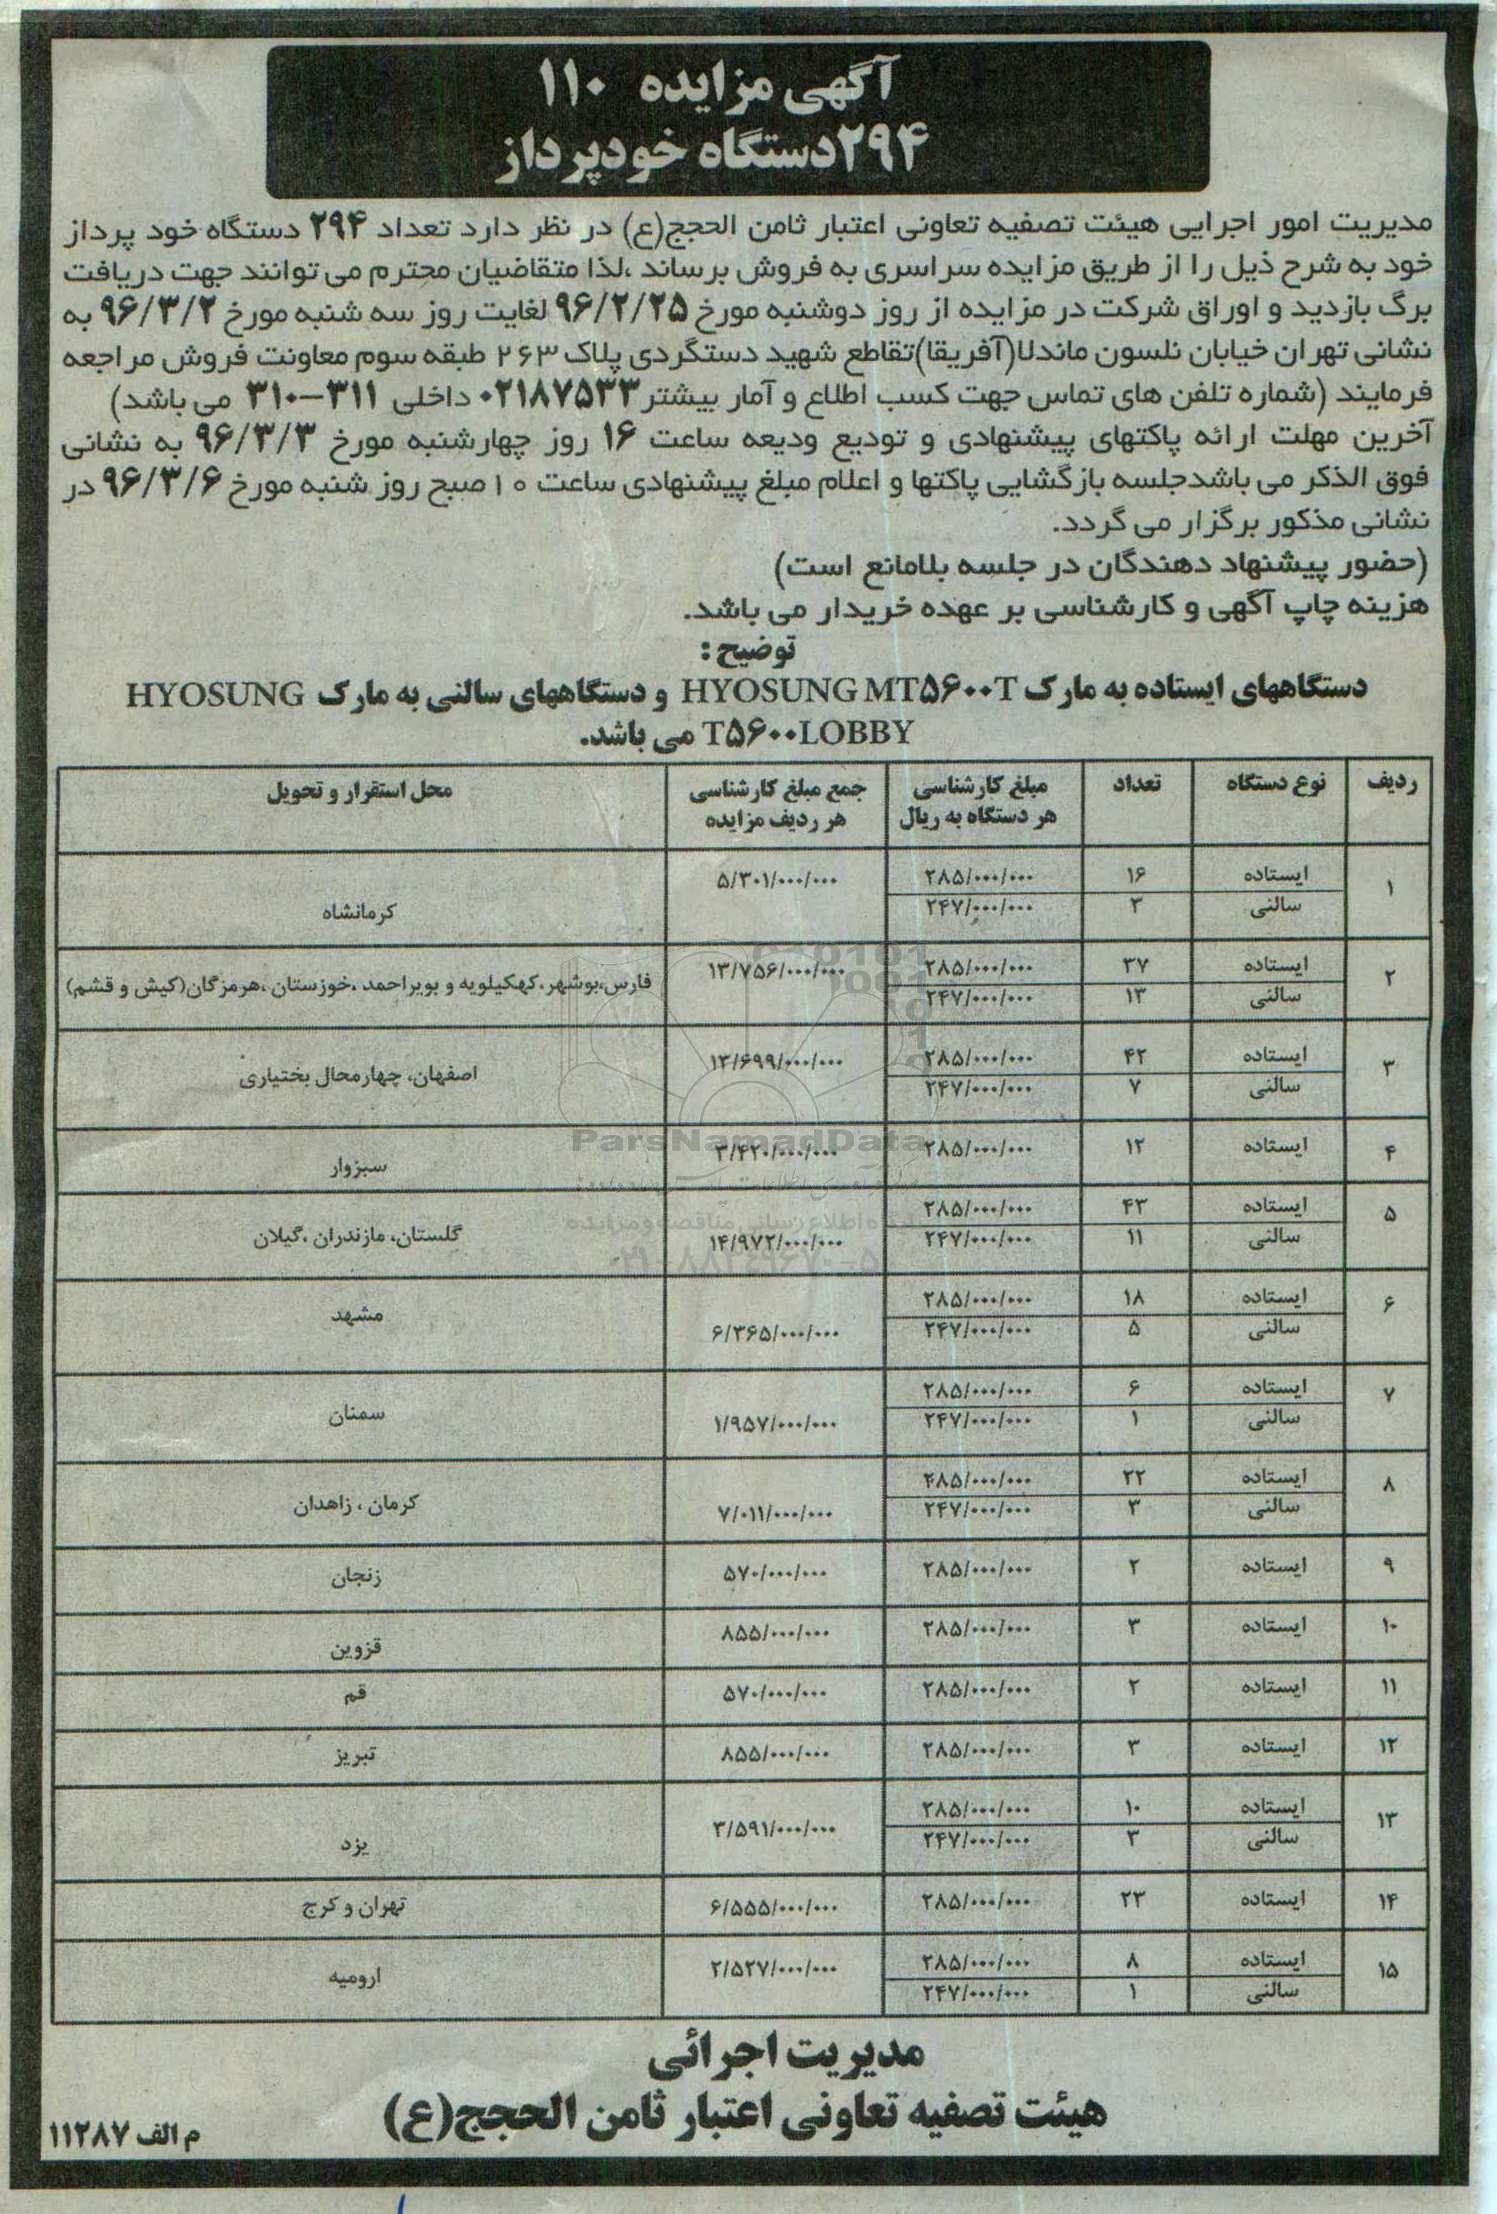 آگهی مزایده ۱۱۰
۲۹۴دستگاه خودپرداز
مدیریت امور اجرایی هیئت تصفیه تعاونی اعتبار ثامن الحجج(ع) در نظر دارد تعداد ۲۹۴ دستگاه خود پرداز
خود به شرح ذیل را از طریق مزایده سراسری به فروش برساند ،لذا متقاضیان محترم می توانند جهت دریافت
برگ بازدید و اوراق شرکت در مزایده از روز دوشنبه مورخ ۹۶/۲/۲۵ لغایت روز سه شنبه مورخ ۹۶/۳/۲ به
نشانی تهران خیابان نلسون ماندلا(آفریقا)تقاطع شهید دستگردی پلاک ۲۶۳ طبقه سوم معاونت فروش مراجعه
فرمایند (شماره تلفن های تماس جهت کسب اطلاع و آمار بیشتر ۰۲۱۸۷۵۳۳ داخلی ۳۱۱-۳۱۰ می باشد)
آخرین مهلت ارائه پاکتهای پیشنهادی و تودیع ودیعه ساعت ۱۶ روز چهارشنبه مورخ ۹۶/۳/۳ به نشانی
فوق الذکر می باشدجلسه بازگشایی پاکتها و اعلام مبلغ پیشنهادی ساعت ۱۰صبح روز شنبه مورخ ۹۶/۳/۶ در
نشانی مذکور برگزار می گردد.
(حضور پیشنهاد دهندگان در جلسه بلامانع است)
هزینه چاپ آگهی و کارشناسی بر عهده خریدار می باشد.
توضیح :
دستگاههای ایستاده به مارک HYOSUNG MT۵۶۰۰T و دستگاههای سالنی به مارک HYOSUNG
T۵۶۰۰LOBBY می باشد.
ردیف نوع دستگاه تعداد مبلغ کارشناسی هر دستگاه به ریال جمع مبلغ کارشناسی هر ردیف مزایده محل استقرار و تحویل
۱ ایستاده ۱۶ ۲۸۵/۰۰۰/۰۰۰ ۵/۳۰۱/۰۰۰/۰۰۰ کرمانشاه
سالنی ۳ ۲۴۷/۰۰۰/۰۰۰
۲ ایستاده ۳۷ ۲۸۵/۰۰۰/۰۰۰ ۱۳/۷۵۶/۰۰۰/۰۰۰ فارس،بوشهر،کهکیلویه و بویراحمد ،خوزستان ،هرمزگان(کیش و قشم)
سالنی ۱۳ ۲۴۷/۰۰۰/۰۰۰
۳ ایستاده ۴۲ ۲۸۵/۰۰۰/۰۰۰ ۱۳/۶۹۹/۰۰۰/۰۰۰ اصفهان، چهارمحال بختیاری
سالنی ۷ ۲۴۷/۰۰۰/۰۰۰
۴ ایستاده ۱۲ ۲۸۵/۰۰۰/۰۰۰ ۳/۴۲۰/۰۰۰/۰۰۰ سبزوار
۵ ایستاده ۴۳ ۲۸۵/۰۰۰/۰۰۰ ۱۴/۹۷۲/۰۰۰/۰۰۰ گلستان، مازندران ،گیلان
سالنی ۱۱ ۲۴۷/۰۰۰/۰۰۰
۶ ایستاده ۱۸ ۲۸۵/۰۰۰/۰۰۰ ۶/۳۶۵/۰۰۰/۰۰۰ مشهد
سالنی ۵ ۲۴۷/۰۰۰/۰۰۰
۷ ایستاده ۶ ۲۸۵/۰۰۰/۰۰۰ ۱/۹۵۷/۰۰۰/۰۰۰ سمنان
سالنی ۱ ۲۴۷/۰۰۰/۰۰۰
۸ ایستاده ۲۲ ۲۸۵/۰۰۰/۰۰۰ ۷/۰۱۱/۰۰۰/۰۰۰ کرمان ، زاهدان
سالنی ۳ ۲۴۷/۰۰۰/۰۰۰
۹ ایستاده ۲ ۲۸۵/۰۰۰/۰۰۰ ۵۷۰/۰۰۰/۰۰۰ زنجان
۱۰ ایستاده ۳ ۲۸۵/۰۰۰/۰۰۰ ۸۵۵/۰۰۰/۰۰۰ قزوین
۱۱ ایستاده ۲ ۲۸۵/۰۰۰/۰۰۰ ۵۷۰/۰۰۰/۰۰۰ قم
۱۲ ایستاده ۳ ۲۸۵/۰۰۰/۰۰۰ ۸۵۵/۰۰۰/۰۰۰ تبریز
۱۳ ایستاده ۱۰ ۲۸۵/۰۰۰/۰۰۰ ۳/۵۹۱/۰۰۰/۰۰۰ یزد
سالنی ۳ ۲۴۷/۰۰۰/۰۰۰
۱۴ ایستاده ۲۳ ۲۸۵/۰۰۰/۰۰۰ ۶/۵۵۵/۰۰۰/۰۰۰ تهران و کرج
۱۵ ایستاده ۸ ۲۸۵/۰۰۰/۰۰۰ ۲/۵۲۷/۰۰۰/۰۰۰ ارومیه
سالنی ۱ ۲۴۷/۰۰۰/۰۰۰
ParsNamadData
مدیریت اجرائی
هیئت تصفیه تعاونی اعتبار ثامن الحجج(ع)
م الف ۱۱۲۸۷